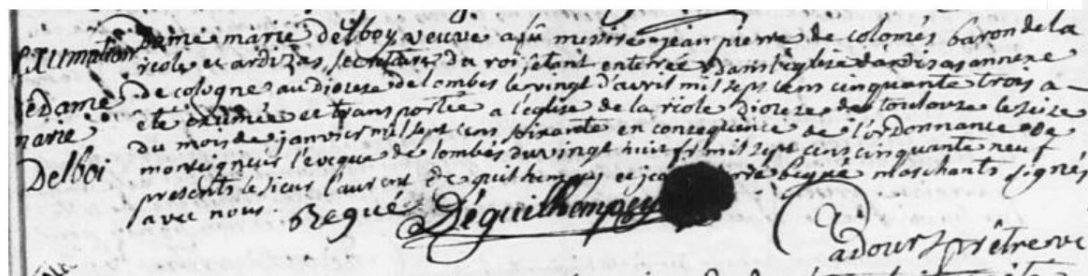 Exumation
de dame
marie
Delboi
Dame marie delboy veuve a fu messire jean pierre de colomés baron de la
riole et ardizas secretaire du roi, etant enterrée dans l'eglise d'ardisas annexe
de cologne au dioceze de lombes le vingt d'avril mil sept cens cinquante trois a
eté exumée et transportée a l'eglise de la riole dioceze de toulouze le seize
du mois de janvier mil sept cens soixante en consequence de l'ordonnance de
monseigneur l'eveque de lombés du vingt huit mil sept cens cinquante neuf
presents le sieur laurent de guilhempey et begué marchants signés
avec nous.
Begué Déguilhempey
adoue prêtre